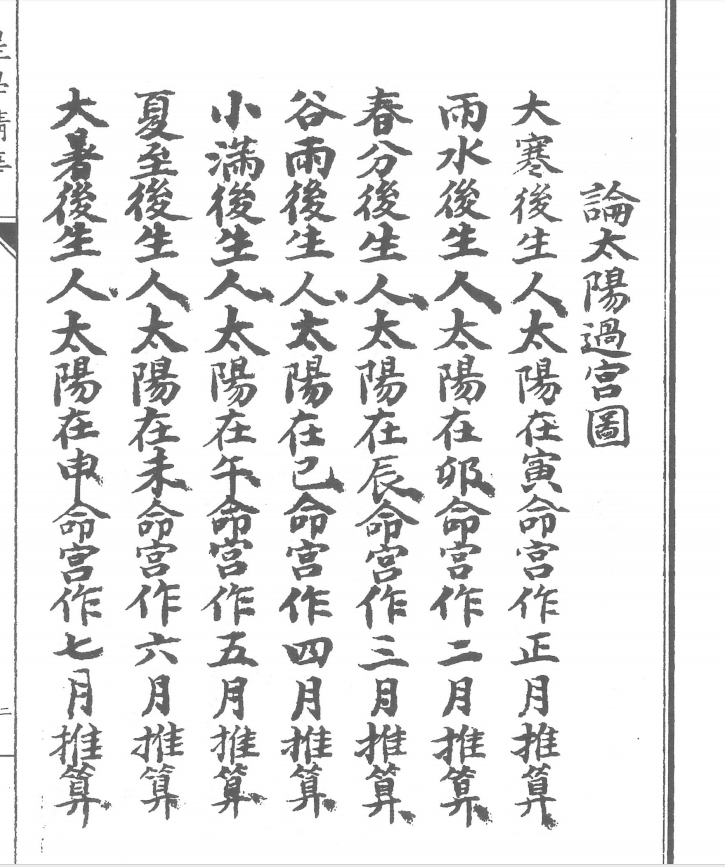 論太陽過宮圖
大寒後生人太陽在寅命宮作正月推算
雨水後生人太陽在卯命宮作二月推算
春分後生人太陽在辰命宮作三月推算
谷雨後生人太陽在巳命宮作四月推算
小滿後生人太陽在午命宮作五月推算
夏至後生人太陽在未命宮作六月推算
大暑後生人太陽在申命宮作七月推算
二